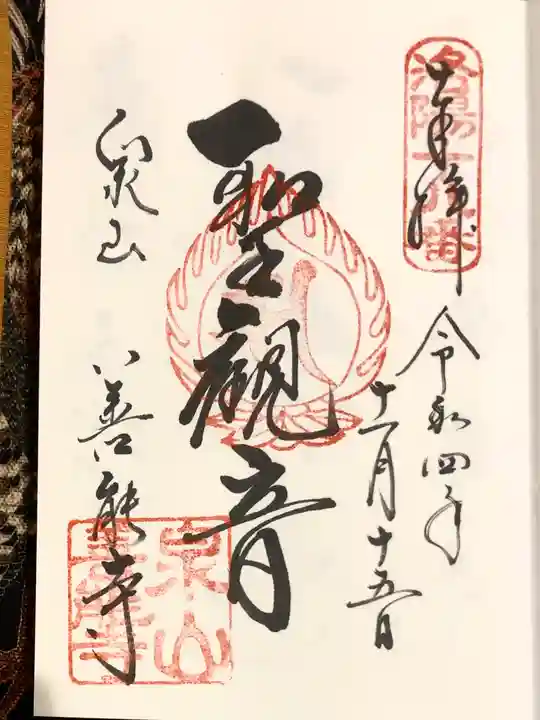 洛陽十八番
奉拝
令和四年
十一月十五日
聖観音
泉山
善能寺
泉山
善能寺